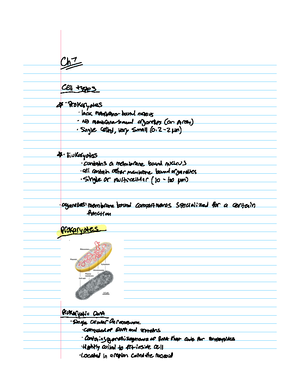 Ch 7
Cell types
* · Prokaryotes
· lack membrane-bound nucleus
· no membrane-bound organelles
· Single celled, very small (0.2-2 µm)
* · Eukaryotes
· contains a membrane bound nucleus
· contain other membrane bound organelles
· Single or multicellular
· organelles - membrane bound compartments specialized for a certain
function
Prokaryotes
Prokaryotic DNA
· Single circular chromosome
· Composed of DNA and proteins
· Tightly coiled to fit inside cell
· Located in a region called the nucleoid